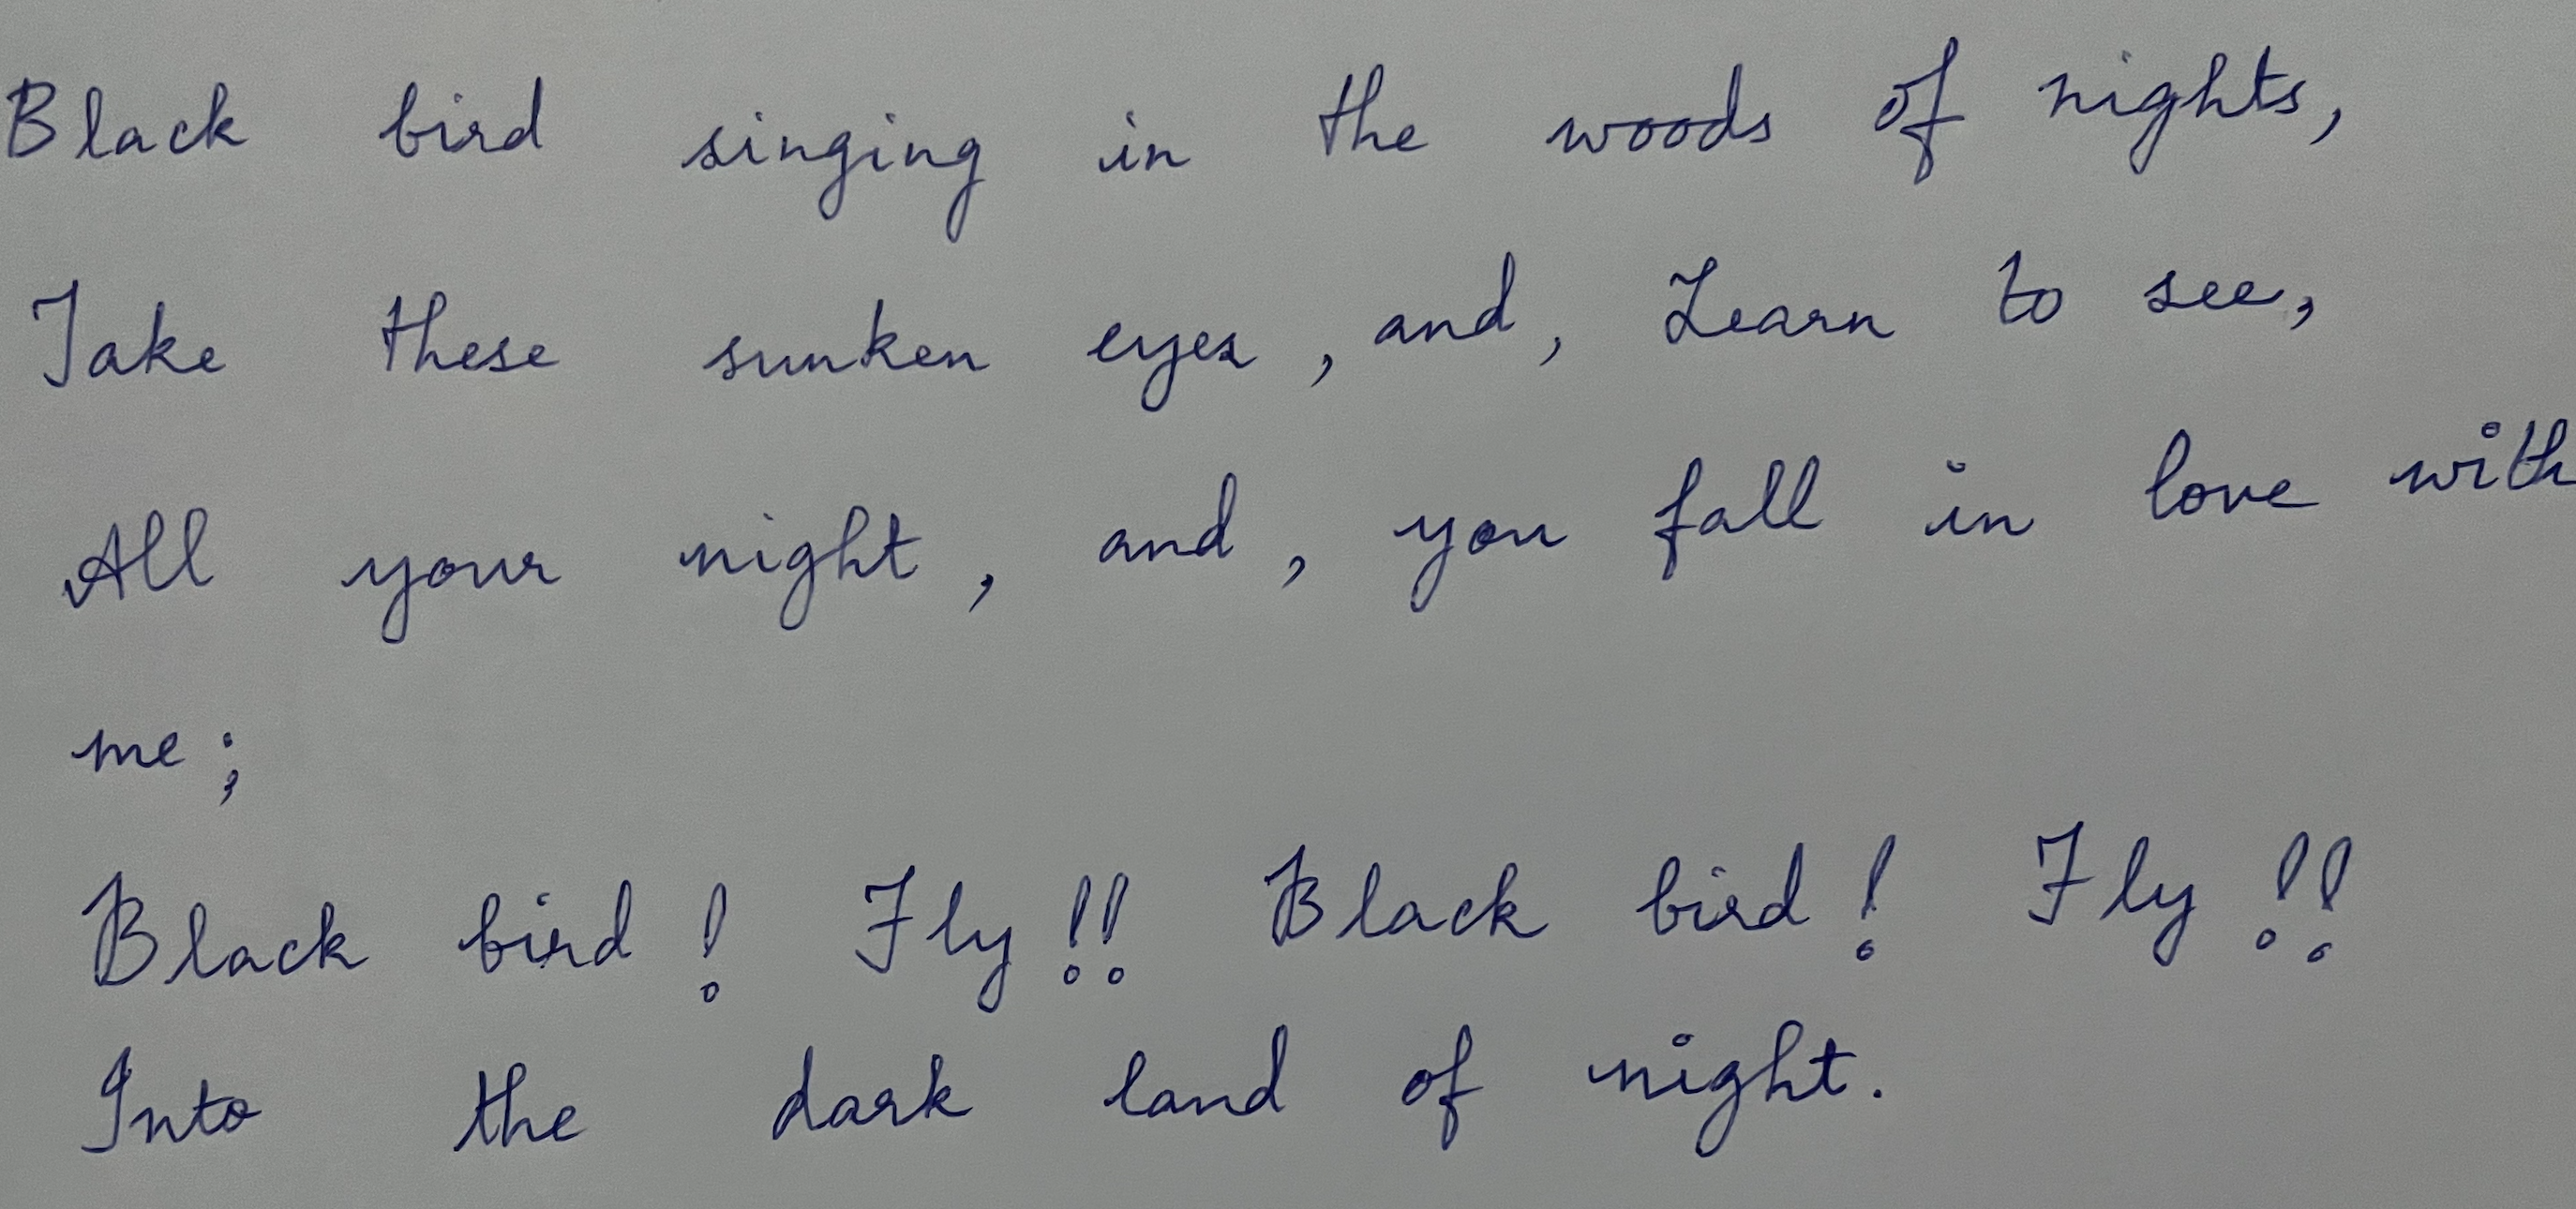 Black bird singing in the woods of nights,
Take these sunken eyes, and, Learn to see,
All your night, and, you fall in love with
me;
Black bird! Fly!! Black bird! Fly!!
Into the dark land of night.